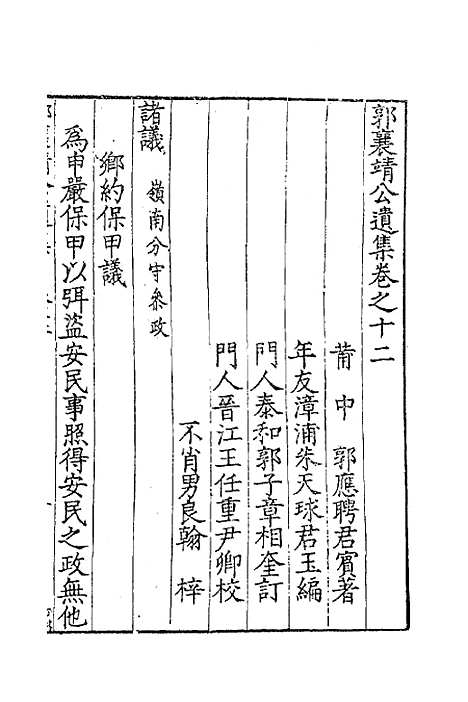 郭襄靖公遺集卷之十二
莆中　郭應聘君賓著
年友漳浦朱天球君玉編
門人泰和郭子章相奎訂
門人晉江王任重尹卿校
不肖男良翰　梓
諸議　嶺南分守參政
鄉約保甲議
爲申嚴保甲以弭盜安民事照得安民之政無他